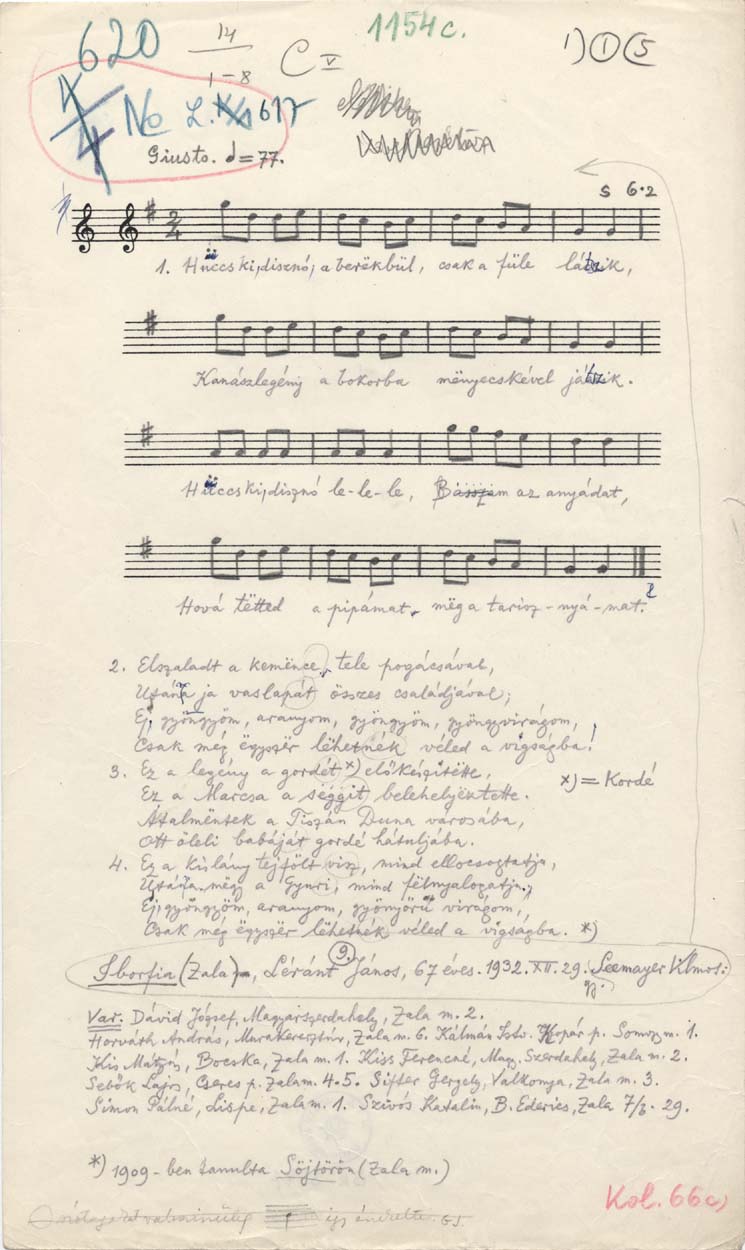 620
14
1-8
C V
1154c.
1) 1 5
4/4 No L. 617
Giusto. d = 77.
s 6·2
2/4
1. Hüccs ki, disznó, a berëkbül, csak a füle látszik,
Kanászlegény a bokorba mënyecskével játszik.
Hüccs ki, disznó le-le-le, Básszam az anyádat,
Hová tëtted a pipámat, mëg a tarisz-nyá-mat.
2. Elszaladt a kemënce, tele pogácsával,
Utána ja vaslapát összes családjával;
Ej, gyöngyöm, aranyom, gyöngyöm, gyöngyvirágom,
Csak még ëgyszër lëhetnék véled a vigságba!
3. Ez a legény a gordét x) előkészitëtte,
Ez a Marcsa a sëggit belehelyëztette.
x) = Kordé
Átalmëntek a Tiszán Duna városába,
Ott öleli babáját gordé hátuljába.
4. Ez a kislány tejfölt visz, mind ellocsogtatja,
Utána mëgy a Gyuri, mind fëlnyalogatja,
Ej, gyöngyöm, aranyom, gyönyörű virágom,
Csak még ëgyszër lëhetnék véled a vigságba. *)
9.
Iborfia (Zala), Léránt János, 67 éves. 1932. XII. 29. Seemayer Vilmos:
gy.
Var. Dávid József, Magyarszerdahely, Zala m. 2.
Horváth András, Murakeresztúr, Zala m. 6. Kálmán Istv. Kopár p. Somogy m. 1.
Kis Mátyás, Bocska, Zala m. 1. Kiss Ferencné, Magy. Szerdahely, Zala m. 2.
Sebők Lajos, Cseres p. Zala m. 4.5. Sifter Gergely, Valkonya, Zala m. 3.
Simon Pálné, Lispe, Zala m. 1. Szivós Katalin, B. Ederics, Zala 7/3. 29.
*) 1909-ben tanulta Söjtörön (Zala m.)
így énekelte. GJ.
Kol. 66c)